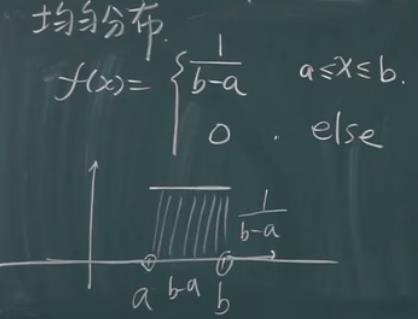 均匀分布.
f(x)= { 1/(b-a)  a≤x≤b.
0 . else
1/(b-a)
a b-a b